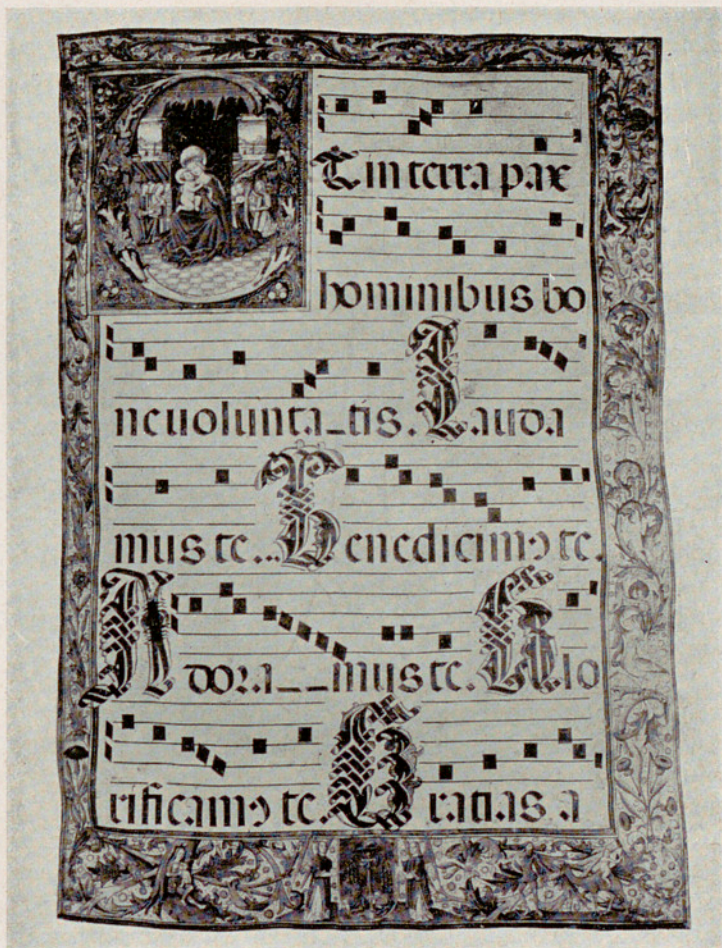 Et in terra pax
hominibus bo
ne uolunta_tis. Lauda
mus te... Benedicimꝰ te.
Adora__mus te. Glo
rificamꝰ te. Gratias a